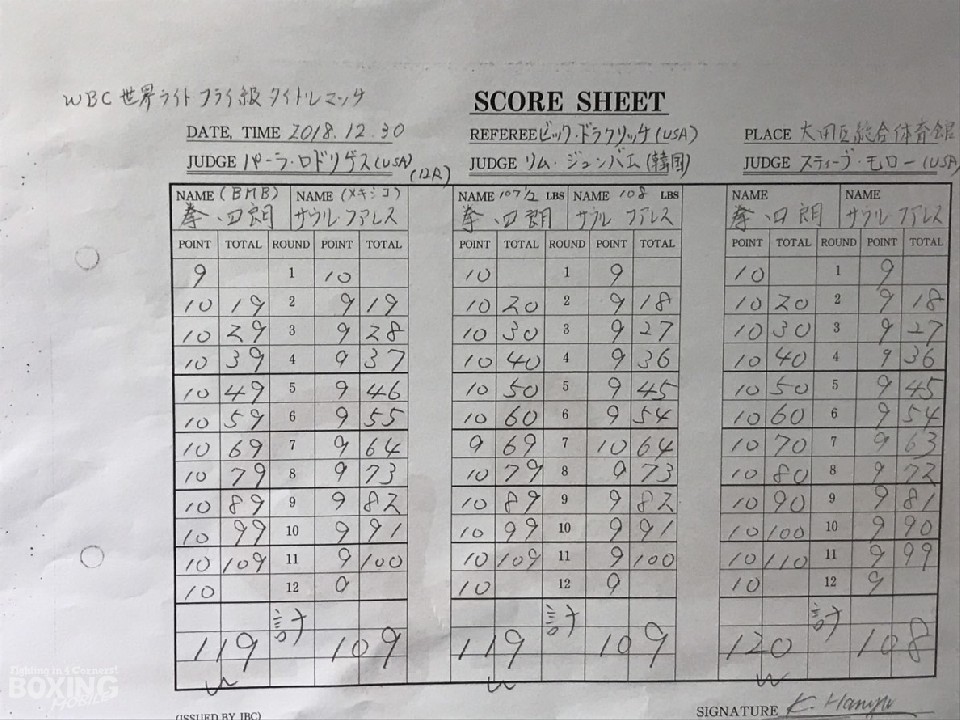 WBC 世界ライトフライ級タイトルマッチ SCORE SHEET
DATE, TIME 2018.12.30 REFEREE ビック・ドラクリッチ(USA) PLACE 大田区総合体育館
JUDGE バーラ・ロドリゲス(USA) (12R) JUDGE リム・ジュンバエ(韓国) JUDGE スティーブ・モロー(USA)
NAME (BMB) NAME (メキシコ) NAME 107½ LBS NAME 108 LBS NAME NAME
拳四朗 サウル ファレス 拳四朗 サウル ファレス 拳四朗 サウル ファレス
POINT TOTAL ROUND POINT TOTAL POINT TOTAL ROUND POINT TOTAL POINT TOTAL ROUND POINT TOTAL
9 1 10 10 1 9 10 1 9
10 19 2 9 19 10 20 2 9 18 10 20 2 9 18
10 29 3 9 28 10 30 3 9 27 10 30 3 9 27
10 39 4 9 37 10 40 4 9 36 10 40 4 9 36
10 49 5 9 46 10 50 5 9 45 10 50 5 9 45
10 59 6 9 55 10 60 6 9 54 10 60 6 9 54
10 69 7 9 64 9 69 7 10 64 10 70 7 9 63
10 79 8 9 73 10 79 8 9 73 10 80 8 9 72
10 89 9 9 82 10 89 9 9 82 10 90 9 9 81
10 99 10 9 91 10 99 10 9 91 10 100 10 9 90
10 109 11 9 100 10 109 11 9 100 10 110 11 9 99
10 12 9 10 12 9 10 12 9
計 計 計
119 109 119 109 120 108
W W W
Fighting in 4 Corners!
BOXING
MOBILE
(ISSUED BY JBC) SIGNATURE